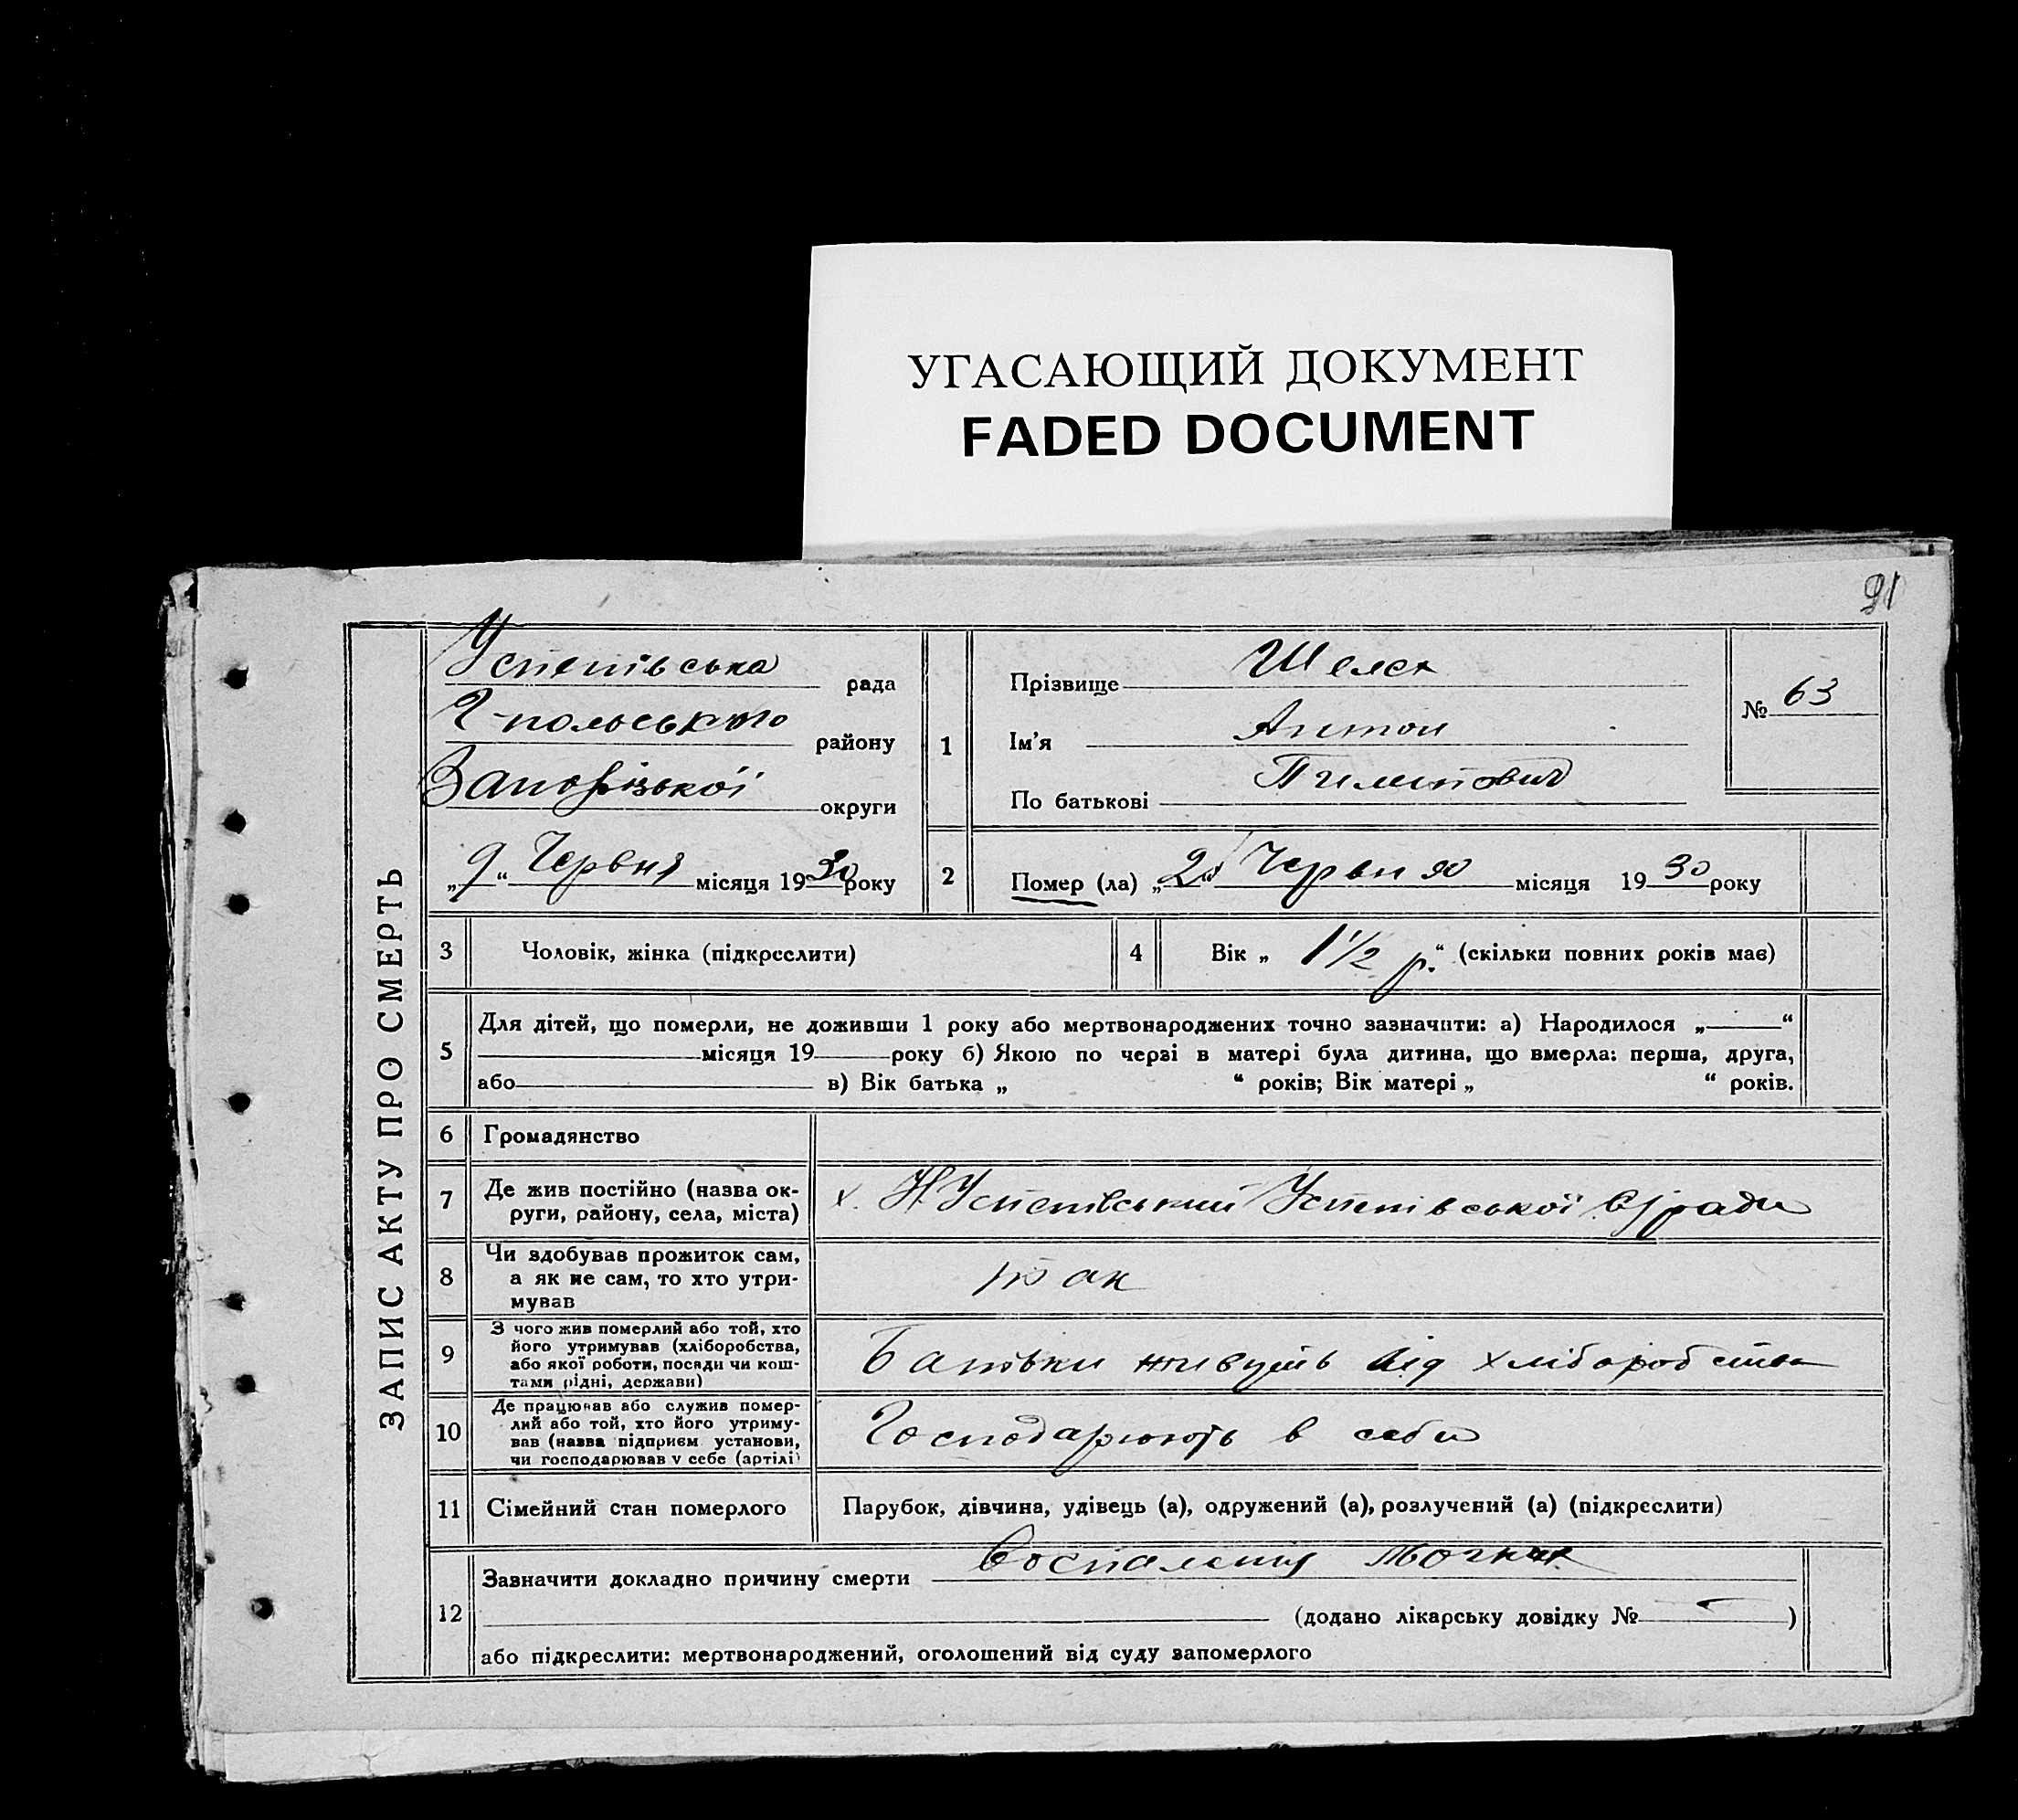 УГАСАЮЩИЙ ДОКУМЕНТ
FADED DOCUMENT
91
ЗАПИС АКТУ ПРО СМЕРТЬ
Успенівська рада
Г-польського району
Запорізької округи
„9“ Червня місяця 1930 року
1
Прізвище
Ім'я Антон
По батькові
№ 63
2
Помер (ла) „2“ Червня місяця 1930 року
3 Чоловік, жінка (підкреслити)
4 Вік „ 1 1/2 р.“ (скільки повних років має)
5
Для дітей, що померли, не доживши 1 року або мертвонароджених точно зазначити: а) Народилося „ “
місяця 19 року б) Якою по черзі в матері була дитина, що вмерла: перша, друга,
або в) Вік батька „ “ років; Вік матері „ “ років.
6 Громадянство
7 Де жив постійно (назва ок-
руги, району, села, міста)
х. Н Успенівський Успенівської с/ради
8 Чи здобував прожиток сам,
а як не сам, то хто утри-
мував
так
9 З чого жив померлий або той, хто
його утримував (хліборобства,
або якої роботи, посади чи кош-
тами рідні, держави)
Батьки живуть від хліборобства
10 Де працював або служив помер-
лий або той, хто його утриму-
вав (назва підприєм установи,
чи господарював у себе (артілі)
Господарюють в себе
11 Сімейний стан померлого
Парубок, дівчина, удівець (а), одружений (а), розлучений (а) (підкреслити)
12
Зазначити докладно причину смерти Воспаления
(додано лікарську довідку № — )
або підкреслити: мертвонароджений, оголошений від суду запомерлого